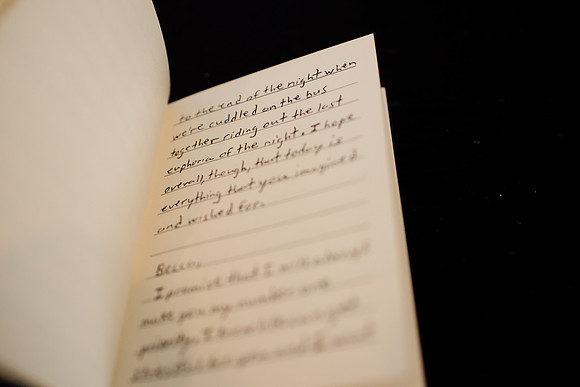 to the end of the night when
we're cuddled on the bus
together riding out the last
euphoria of the night. I hope
overall, though, that today is
everything that you imagined
and wished for.
Becca,
I promise that I will always
make you my number one
priority. I know